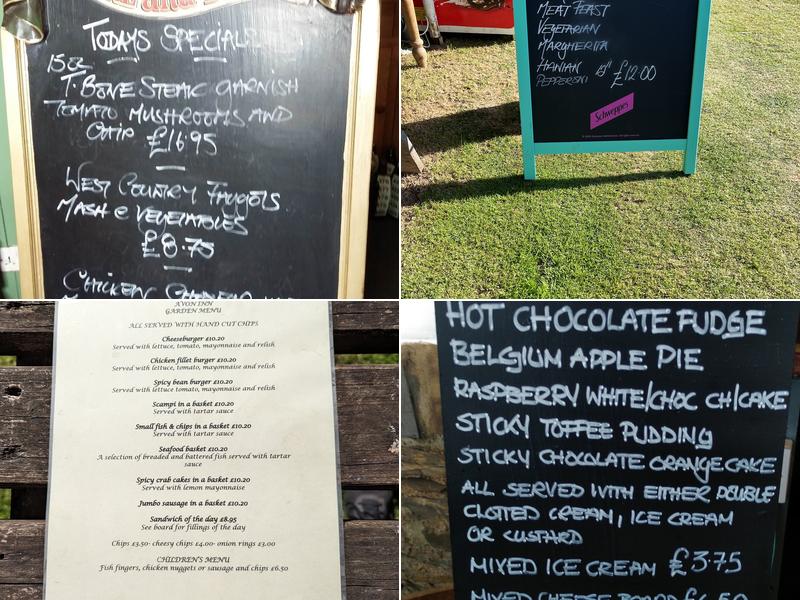 TODAYS SPECIAL
15oz
T.BONE STEAK GARNISH
TOMATO MUSHROOMS AND
CHIP £16.95
WEST COUNTRY FAGGOTS
MASH & VEGETABLES
£8.75
CHICKEN
MEAT FEAST
VEGETARIAN
MARGHERITA
HAWAIIAN
PEPPERONI £12.00
Schweppes
AVON INN
GARDEN MENU
ALL SERVED WITH HAND CUT CHIPS
Cheeseburger £10.20
Served with lettuce, tomato, mayonnaise and relish
Chicken fillet burger £10.20
Served with lettuce, tomato, mayonnaise and relish
Spicy bean burger £10.20
Served with lettuce tomato, mayonnaise and relish
Scampi in a basket £10.20
Served with tartar sauce
Small fish & chips in a basket £10.20
Served with tartar sauce
Seafood basket £10.20
A selection of breaded and battered fish served with tartar
sauce
Spicy crab cakes in a basket £10.20
Served with lemon mayonnaise
Jumbo sausage in a basket £10.20
Sandwich of the day £8.95
See board for fillings of the day
Chips £3.50- cheesy chips £4.00- onion rings £3.00
CHILDREN'S MENU
Fish fingers, chicken nuggets or sausage and chips £6.50
HOT CHOCOLATE FUDGE
BELGIUM APPLE PIE
RASPBERRY WHITE/CHOC CH/CAKE
STICKY TOFFEE PUDDING
STICKY CHOCOLATE ORANGE CAKE
ALL SERVED WITH EITHER DOUBLE
CLOTTED CREAM, ICE CREAM
OR CUSTARD
MIXED ICE CREAM £3.75
MIXED CHEESE BOARD £6.50